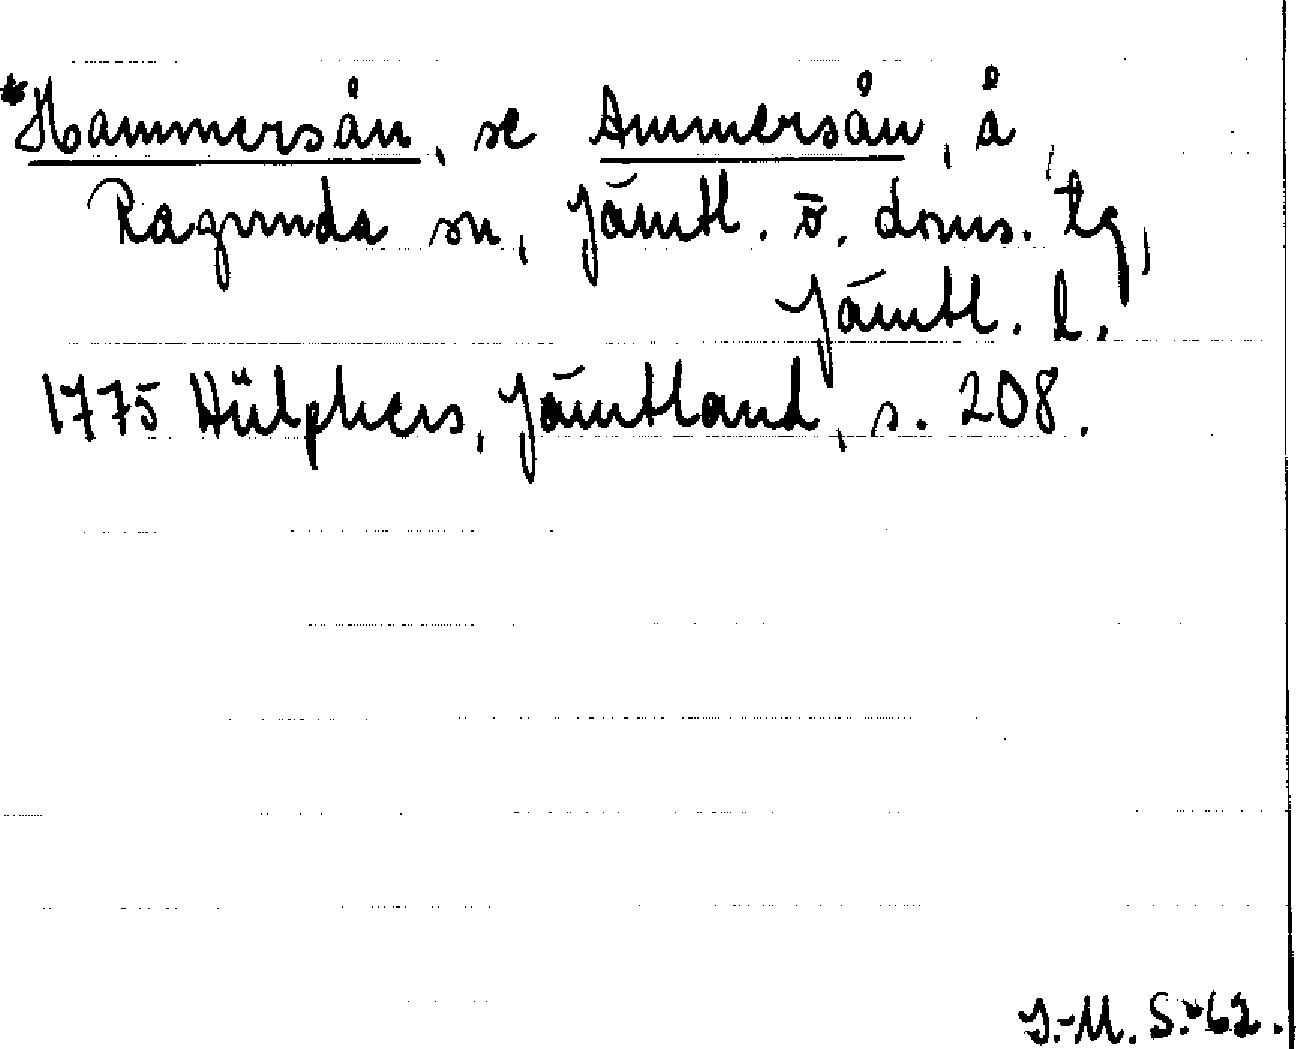 *Hammersån, se Ammersån, å,
Ragunda sn, Jämtl. ö. doms. tg,
Jämtl. l.
1775 Hülphers, Jämtland, s. 208.
I.-M. S. -62.